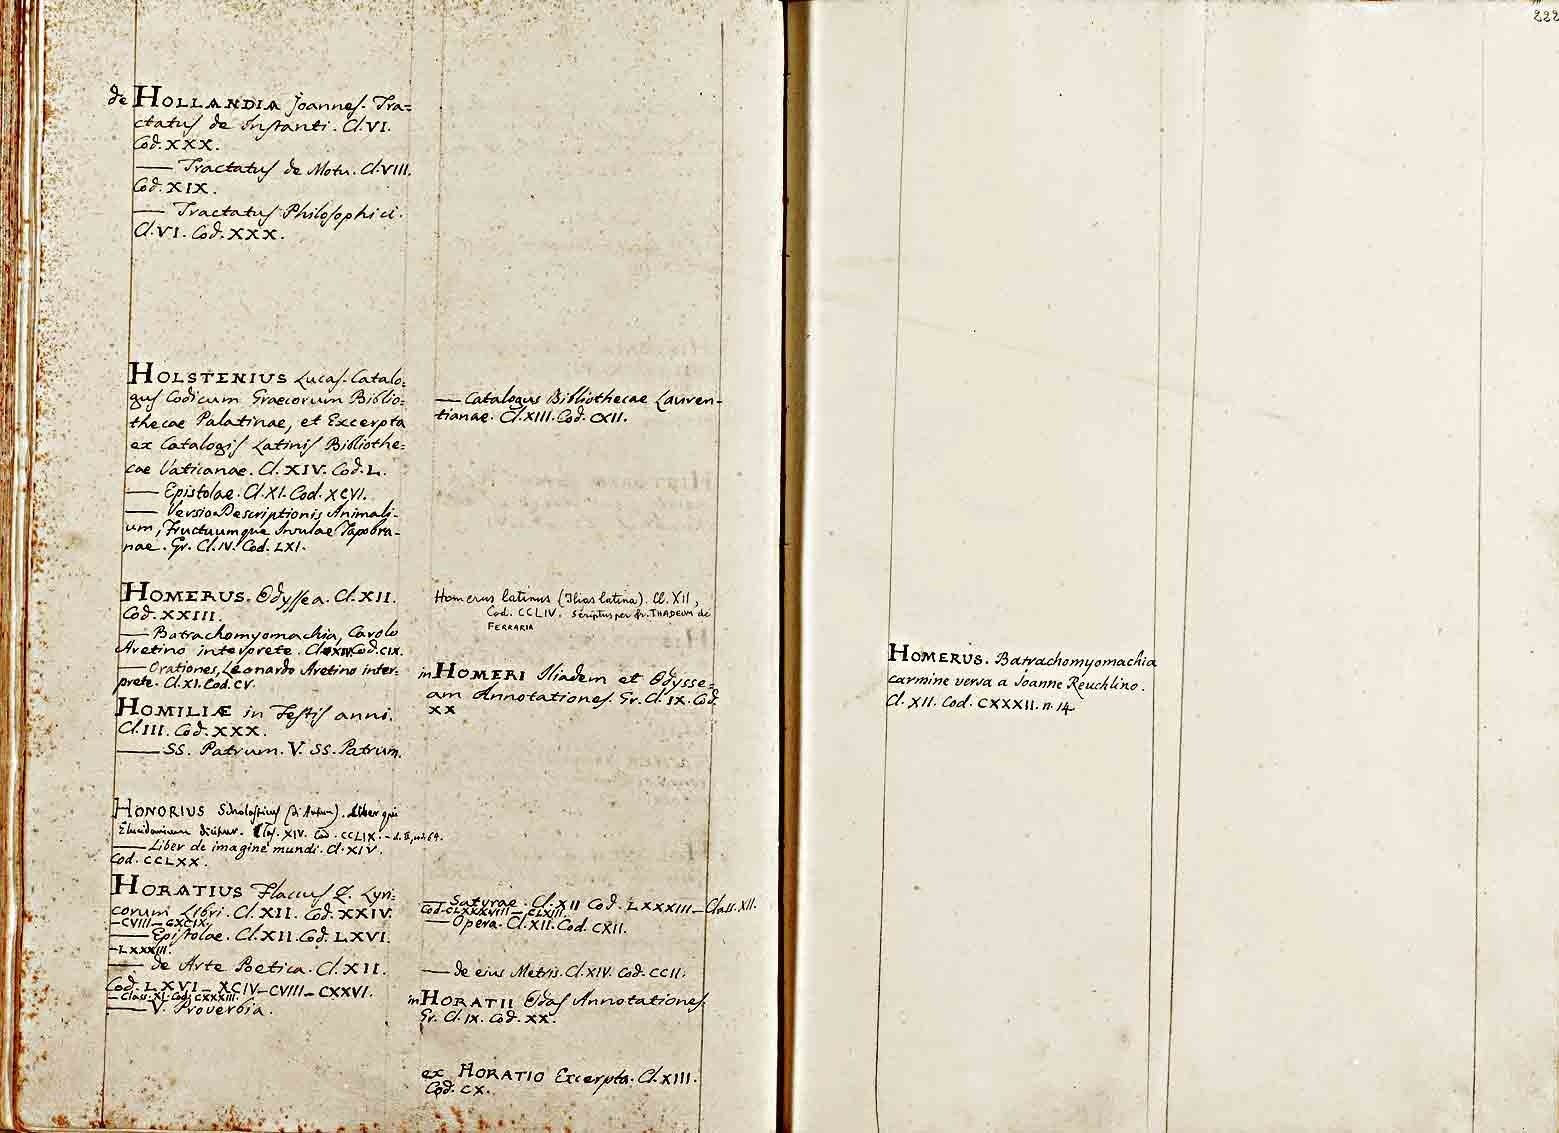 de HOLLANDIA Joannes. Tra=
ctatus de Instanti. Cl. VI.
Cod. XXX.
— Tractatus de Motu. Cl. VIII.
Cod. XIX.
— Tractatus Philosophici.
Cl. VI. Cod. XXX.
HOLSTENIUS Lucas. Catalo=
gus Codicum Graecorum Biblio=
thecae Palatinae, et Excerpta
ex Catalogis Latinis Bibliothe=
cae Vaticanae. Cl. XIV. Cod. L.
— Epistolae. Cl. XI. Cod. XCVI.
— Versio Descriptionis Animali-
um, Fructuumque Insulae Tapobra-
nae. Gr. Cl. IV. Cod. LXI.
HOMERUS. Odyssea. Cl. XII.
Cod. XXIII.
— Batrachomyomachia, Carolo
Aretino interprete. Cl. XIV. Cod. CIX.
— Orationes, Leonardo Aretino inter-
prete. Cl. XI. Cod. CV.
HOMILIÆ in Festis anni.
Cl. III. Cod. XXX.
— SS. Patrum. V. SS. Patrum.
HONORIUS Scholasticus (di Autun). Liber qui
Elucidarium dicitur. Clas. XIV. Cod. CCLIX.
— Liber de imagine mundi. Cl. XIV.
Cod. CCLXX.
HORATIUS Flaccus Q. Lyri=
corum Libri. Cl. XII. Cod. XXIV.
— CVIII — CXCIX.
— Epistolae. Cl. XII. Cod. LXVI.
— LXXXIII.
— de Arte Poetica. Cl. XII.
Cod. LXVI — XCIV — CVIII — CXXVI.
— Class. XI. Cod. CXXXIII.
— V. Proverbia.
— Catalogus Bibliothecae Lauren-
tianae. Cl. XIII. Cod. CXII.
Homerus latinus (Ilias latina). Cl. XII,
Cod. CCLIV. Scriptus per fr. THADEUM de
FERRARIA
in HOMERI Iliadem et Odysse=
am Annotationes. Gr. Cl. IX. Cod.
XX
— Satyrae. Cl. XII Cod. LXXXIII — Class. XII.
Cod. CLXXXVIII — CLXIII.
— Opera. Cl. XII. Cod. CXII.
— de eius Metris. Cl. XIV. Cod. CCII.
in HORATII Odas Annotationes.
Gr. Cl. IX. Cod. XX.
ex HORATIO Excerpta. Cl. XIII.
Cod. CX.
222
HOMERUS. Batrachomyomachia
carmine versa a Joanne Reuchlino.
Cl. XII. Cod. CXXXII. n. 14